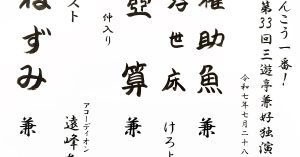 んこう一番！
第33回三遊亭兼好独演
令和七年七月二十八
権助魚 兼
浮世床 けろよ
仲入り
壺算 兼
スト
アコーディオン
遠峰
ねずみ 兼